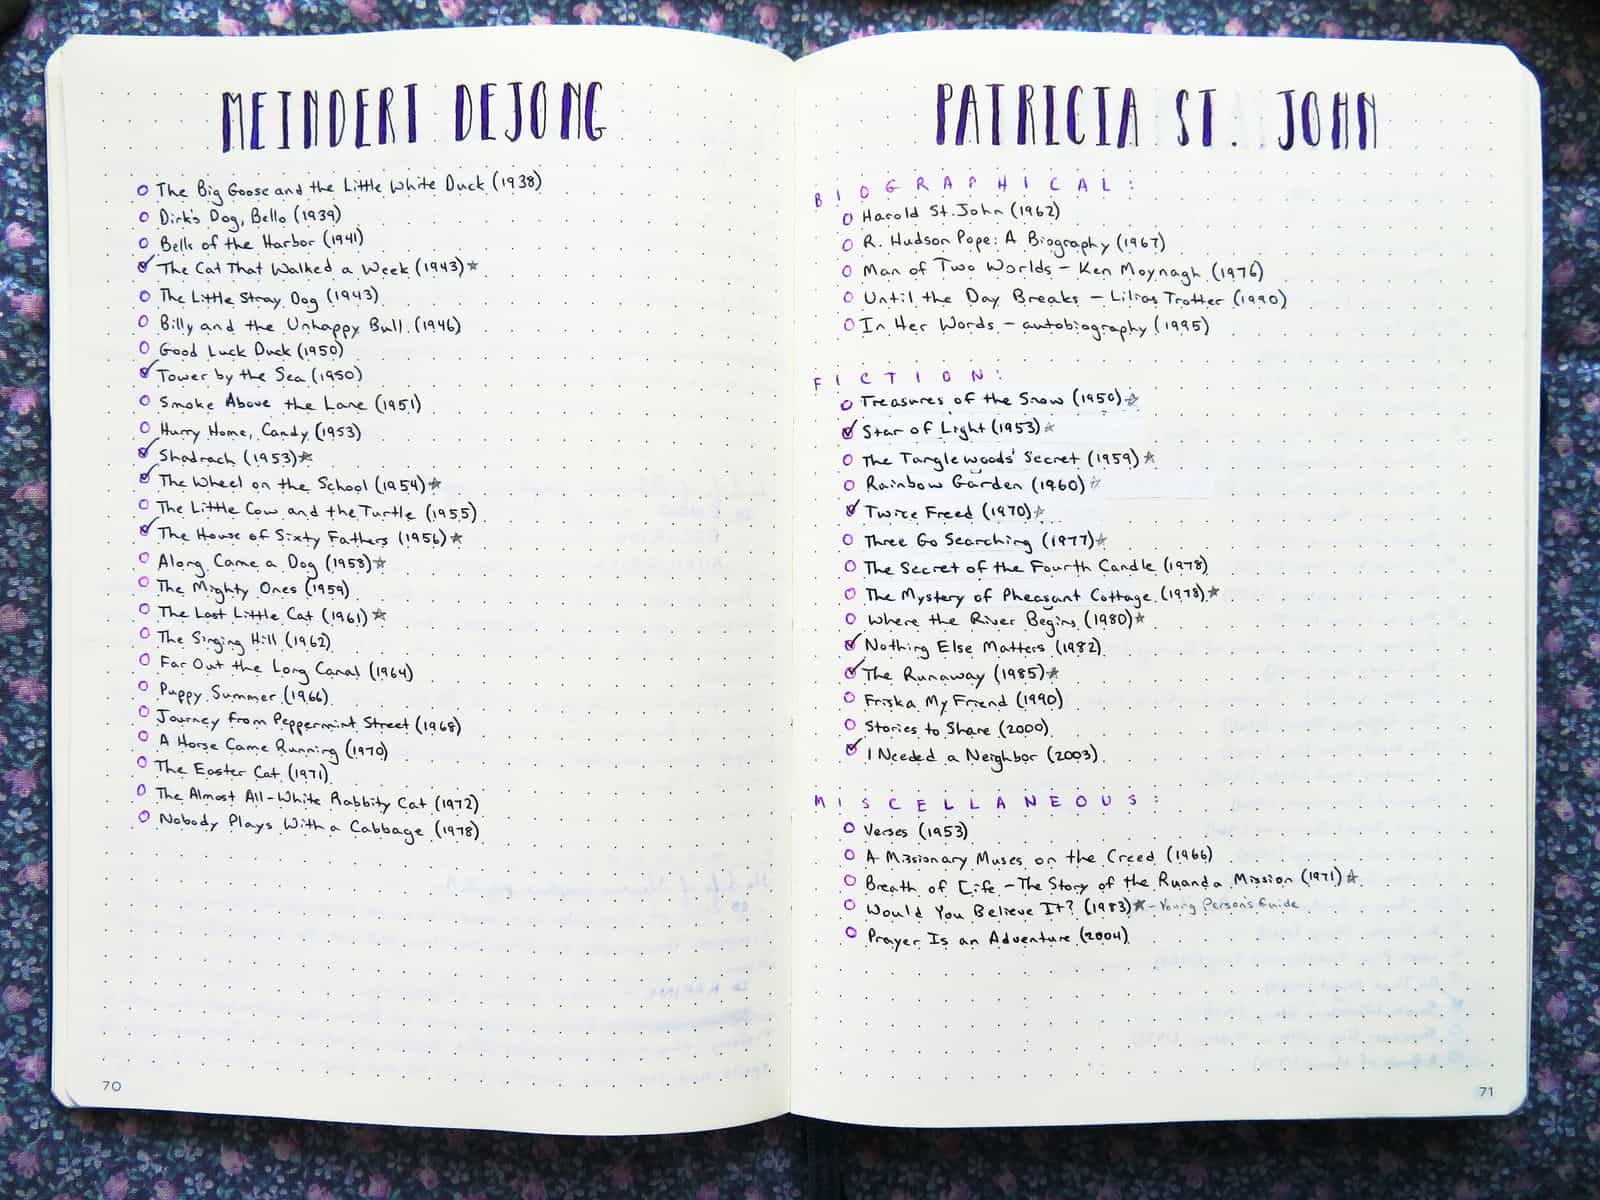 MEINDERT DEJONG
The Big Goose and the Little White Duck (1938)
Dirk's Dog, Bello (1939)
Bells of the Harbor (1941)
The Cat That Walked a Week (1943)
The Little Stray Dog (1943)
Billy and the Unhappy Bull (1946)
Good Luck Duck (1950)
Tower by the Sea (1950)
Smoke Above the Lane (1951)
Hurry Home, Candy (1953)
Shadrach (1953)
The Wheel on the School (1954)
The Little Cow and the Turtle (1955)
The House of Sixty Fathers (1956)
Along Came a Dog (1958)
The Mighty Ones (1959)
The Last Little Cat (1961)
The Singing Hill (1962)
Far Out the Long Canal (1964)
Puppy Summer (1966)
Journey from Peppermint Street (1968)
A Horse Came Running (1970)
The Easter Cat (1971)
The Almost All-White Rabbity Cat (1972)
Nobody Plays With a Cabbage (1978)
70
PATRICIA ST. JOHN
BIOGRAPHICAL:
Harold St. John (1962)
R. Hudson Pope: A Biography (1967)
Man of Two Worlds - Ken Moynagh (1976)
Until the Day Breaks - Lilias Trotter (1990)
In Her Words - autobiography (1995)
FICTION:
Treasures of the Snow (1950)
Star of Light (1953)
The Tanglewoods' Secret (1959)
Rainbow Garden (1960)
Twice Freed (1970)
Three Go Searching (1977)
The Secret of the Fourth Candle (1978)
The Mystery of Pheasant Cottage (1978)
Where the River Begins (1980)
Nothing Else Matters (1982)
The Runaway (1985)
Friska My Friend (1990)
Stories to Share (2000)
I Needed a Neighbor (2003)
MISCELLANEOUS:
Verses (1953)
A Missionary Muses on the Creed (1966)
Breath of Life - The Story of the Ruanda Mission (1971)
Would You Believe It? (1983) - Young Person's Guide
Prayer Is an Adventure (2004)
71